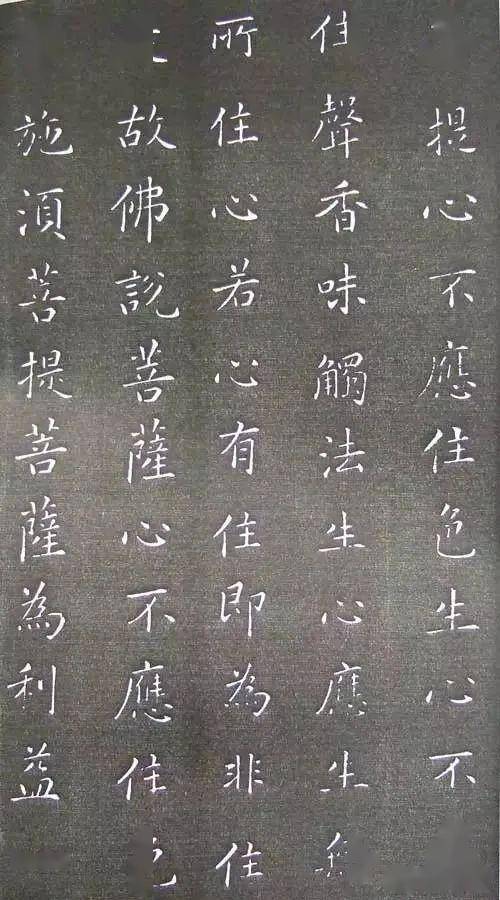 提心不應住色生心不
住聲香味觸法生心應生
所住心若心有住即為非住
故佛說菩薩心不應住
施湏菩提菩薩為利益